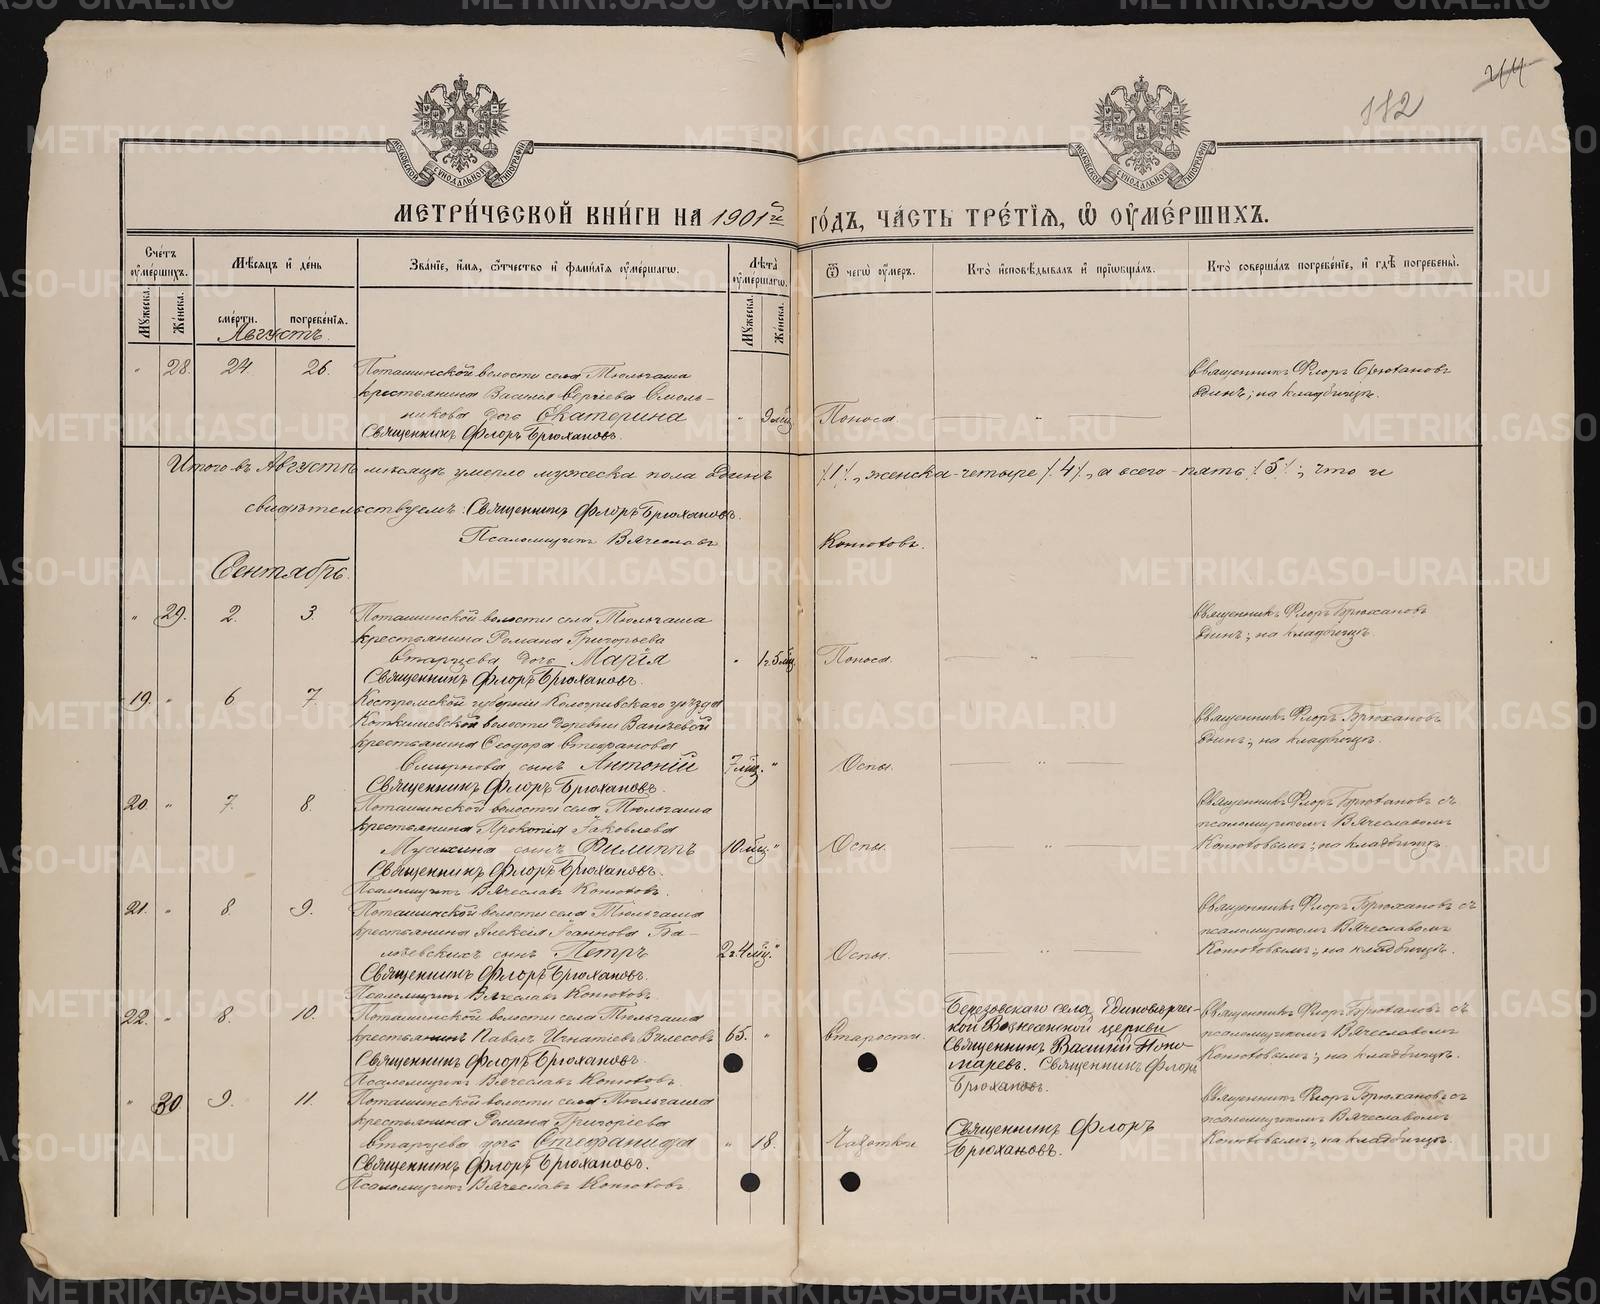 244
112
МОСКОВСКОЙ СѴНОДАЛЬНОЙ ТИПОГРАФІИ
МОСКОВСКОЙ СѴНОДАЛЬНОЙ ТИПОГРАФІИ
МЕТРИ́ЧЕСКОЙ КНИ́ГИ НА 1901й ГО́ДЪ, ЧА́СТЬ ТРЕ́ТІѦ, Ѡ ОУМЕ́РШИХЪ.
Сче́тъ оуме́ршихъ.
Мѣ́сѧцъ и де́нь
Зва́нїе, и́мѧ, ѻ́тчество и фами́лїѧ оуме́ршагѡ.
Лѣ́та оуме́ршагѡ.
Ѿ чегѡ̀ оу́меръ.
Кто̀ и҆сповѣ́дывалъ и прїѡбща́лъ.
Кто̀ соверша́лъ погребе́нїе, и гдѣ̀ погребены̀.
Мꙋ́жеска. Же́нска.
сме́рти. погребе́нїѧ.
Мꙋ́жеска. Же́нска.
Августъ.
" 28. 24. 26. Поташинской волости села Тюльгаша
крестьянина Василія Сергіева Смоль-
никова дочь Екатерина " 9 мѣц. Поноса. — " —
Священникъ Флоръ Брюхановъ.
Священникъ Флоръ Брюхановъ
единъ; на кладбищѣ.
Итого въ Августѣ мѣсяцѣ умерло мужеска пола одинъ /1/, женска - четыре /4/, а всего - пять /5/; что и
свидѣтельствуемъ: Священникъ Флоръ Брюхановъ.
Псаломщикъ Вячеславъ Конюховъ.
Сентябрь.
" 29. 2. 3. Поташинской волости села Тюльгаша
крестьянина Романа Григорьева
Старцева дочь Марія " 1 г. 5 мѣц. Поноса. — " —
Священникъ Флоръ Брюхановъ.
Священникъ Флоръ Брюхановъ
единъ; на кладбищѣ.
19. " 6 7 Костромской губерніи Кологривскаго уѣзда
волости деревни
крестьянина Ѳеодора Стефанова
Смирнова сынъ Антоній 7 мѣц. " Оспы. — " —
Священникъ Флоръ Брюхановъ.
Священникъ Флоръ Брюхановъ
единъ; на кладбищѣ.
20 " 7. 8. Поташинской волости села Тюльгаша
крестьянина Прокопія Іаковлева
сынъ Филиппъ 10 мѣц. " Оспы. — " —
Священникъ Флоръ Брюхановъ.
Псаломщикъ Вячеславъ Конюховъ.
Священникъ Флоръ Брюхановъ съ
псаломщикомъ Вячеславомъ
Конюховымъ; на кладбищѣ.
21. " 8. 9. Поташинской волости села Тюльгаша
крестьянина Алексія Іоаннова
сынъ Петръ 2 г. 4 мѣц. " Оспы. — " —
Священникъ Флоръ Брюхановъ.
Псаломщикъ Вячеславъ Конюховъ.
Священникъ Флоръ Брюхановъ съ
псаломщикомъ Вячеславомъ
Конюховымъ; на кладбищѣ.
22. " 8. 10. Поташинской волости села Тюльгаша
крестьянинъ Павелъ Игнатіевъ Вилесовъ 65. " Старости.
Священникъ Флоръ Брюхановъ.
Псаломщикъ Вячеславъ Конюховъ.
Березовскаго села, Единовѣрчес-
кой Вознесенской церкви
Священникъ Василій Поно-
маревъ. Священникъ Флоръ
Брюхановъ.
Священникъ Флоръ Брюхановъ съ
псаломщикомъ Вячеславомъ
Конюховымъ; на кладбищѣ.
" 30. 9. 11. Поташинской волости села Тюльгаша
крестьянина Романа Григоріева
Старцева дочь Стефанида " 18. Чахотки.
Священникъ Флоръ Брюхановъ.
Псаломщикъ Вячеславъ Конюховъ.
Священникъ Флоръ
Брюхановъ.
Священникъ Флоръ Брюхановъ съ
псаломщикомъ Вячеславомъ
Конюховымъ; на кладбищѣ.
METRIKI.GASO-URAL.RU